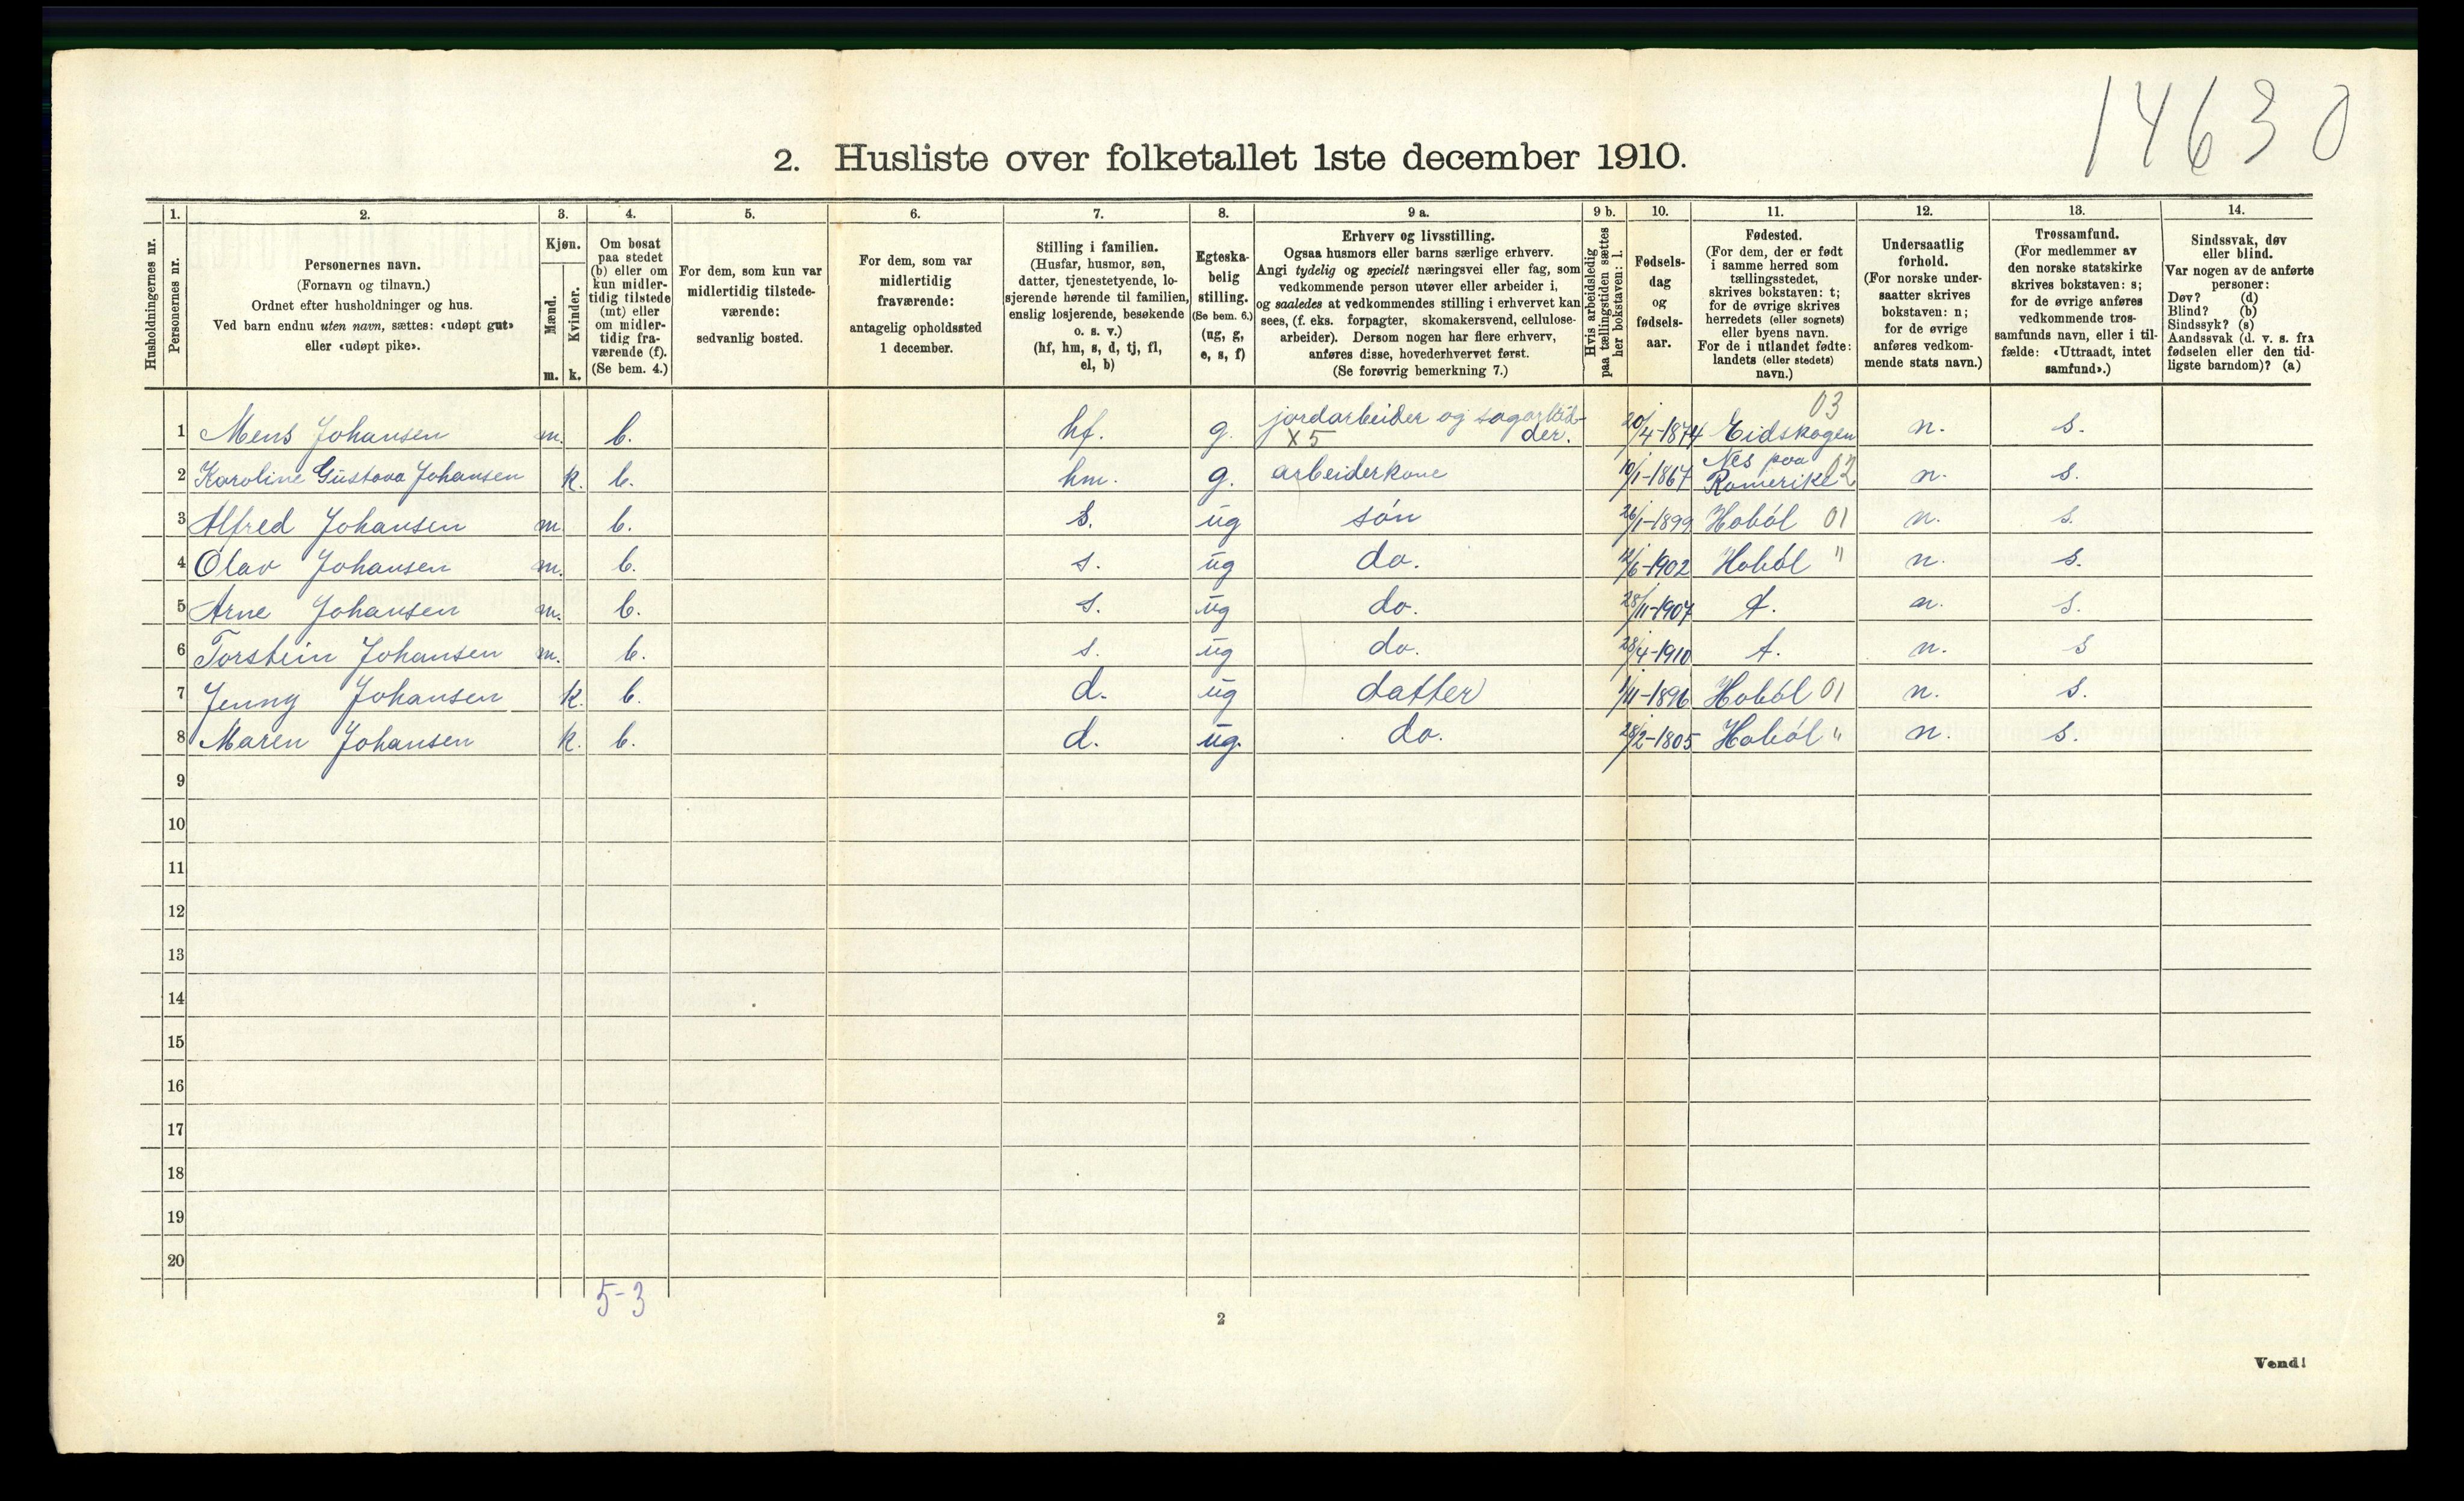 14630
2. Husliste over folketallet 1ste december 1910.
1. 2. 3. 4. 5. 6. 7. 8. 9 a. 9 b. 10. 11. 12. 13. 14.
Husholdningernes nr.
Personernes nr.
Personernes navn.
(Fornavn og tilnavn.)
Ordnet efter husholdninger og hus.
Ved barn endnu uten navn, sættes: «udøpt gut»
eller «udøpt pike».
Kjøn.
Mænd.
Kvinder.
m. k.
Om bosat
paa stedet
(b) eller om
kun midler-
tidig tilstede
(mt) eller
om midler-
tidig fra-
værende (f).
(Se bem. 4.)
For dem, som kun var
midlertidig tilstede-
værende:
sedvanlig bosted.
For dem, som var
midlertidig
fraværende:
antagelig opholdssted
1 december.
Stilling i familien.
(Husfar, husmor, søn,
datter, tjenestetyende, lo-
sjerende hørende til familien,
enslig losjerende, besøkende
o. s. v.)
(hf, hm, s, d, tj, fl,
el, b)
Egteska-
belig
stilling.
(Se bem. 6.)
(ug, g,
e, s, f)
Erhverv og livsstilling.
Ogsaa husmors eller barns særlige erhverv.
Angi tydelig og specielt næringsvei eller fag, som
vedkommende person utøver eller arbeider i,
og saaledes at vedkommendes stilling i erhvervet kan
sees, (f. eks. forpagter, skomakersvend, cellulose-
arbeider). Dersom nogen har flere erhverv,
anføres disse, hovederhvervet først.
(Se forøvrig bemerkning 7.)
Hvis arbeidsledig
paa tællingstiden sættes
her bokstaven: l.
Fødsels-
dag
og
fødsels-
aar.
Fødested.
(For dem, der er født
i samme herred som
tællingsstedet,
skrives bokstaven: t;
for de øvrige skrives
herredets (eller sognets)
eller byens navn.
For de i utlandet fødte:
landets (eller stedets)
navn.)
Undersaatlig
forhold.
(For norske under-
saatter skrives
bokstaven: n;
for de øvrige
anføres vedkom-
mende stats navn.)
Trossamfund.
(For medlemmer av
den norske statskirke
skrives bokstaven: s;
for de øvrige anføres
vedkommende tros-
samfunds navn, eller i til-
fælde: «Uttraadt, intet
samfund».)
Sindssvak, døv
eller blind.
Var nogen av de anførte
personer:
Døv? (d)
Blind? (b)
Sindssyk? (s)
Aandssvak (d. v. s. fra
fødselen eller den tid-
ligste barndom)? (a)
03
1 Mens Johansen m. b. hf. g. jordarbeider og sagarbei-
der. X5 20/4-1874 Eidskogen n. s.
2 Karoline Gustava Johansen k. b. hm. g. arbeiderkone 10/1-1867 Nes paa
Romerike 02 n. s.
3 Alfred Johansen m. b. s. ug søn 26/1-1899 Hobøl 01 n. s.
4 Olav Johansen m. b. s. ug do. 12/6-1902 Hobøl " n. s.
5 Arne Johansen m. b. s. ug do. 28/11-1907 t. n. s.
6 Torstein Johansen m. b. s. ug do. 28/4-1910 t. n. s
7 Jenny Johansen k. b. d. ug datter 1/11-1896 Hobøl 01 n. s.
8 Maren Johansen k. b. d. ug. do. 28/2-1805 Hobøl " n. s.
9
10
11
12
13
14
15
16
17
18
19
20
5-3
2
Vend!